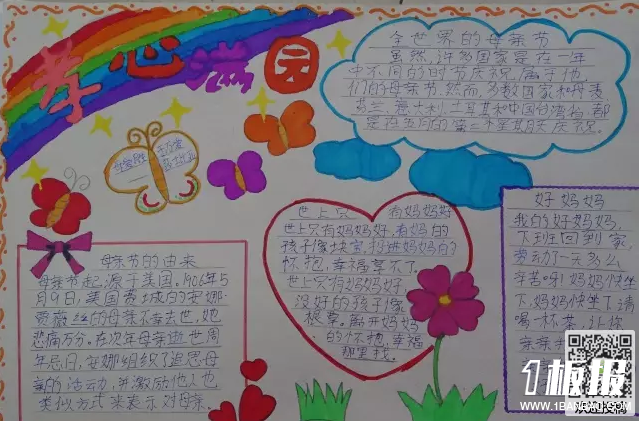 孝心满园
全世界的母亲节
虽然,许多国家是在一年
中不同的时节庆祝属于他
们的母亲节,然而,多数国家和丹麦
芬兰,意大利,土耳其和中国台湾省,都
是在五月的第二个星期天庆
母亲节的由来
母亲节起源于美国。1906年5
月9日,美国费城的安娜·
的母亲不幸去世,她
悲痛万分。在次年母亲逝世周
年忌日,安娜组织了追思母
亲的活动,并激励他人也
类似方式来表示对母亲。
世上只 有妈妈好
世上只有妈妈好,有妈的
孩子像块宝,投进妈妈的
怀抱,幸福享不了。
世上只有妈妈好,
没妈的孩子像
根草。离开妈妈
的怀抱,幸福
那里找。
好妈妈
我的好妈妈,
下班回到家,
劳动了一天多么
辛苦呀!妈妈快坐
下,妈妈快坐下,请
喝一杯茶,让我
亲亲
1板报
WWW.1BANBAO.COM